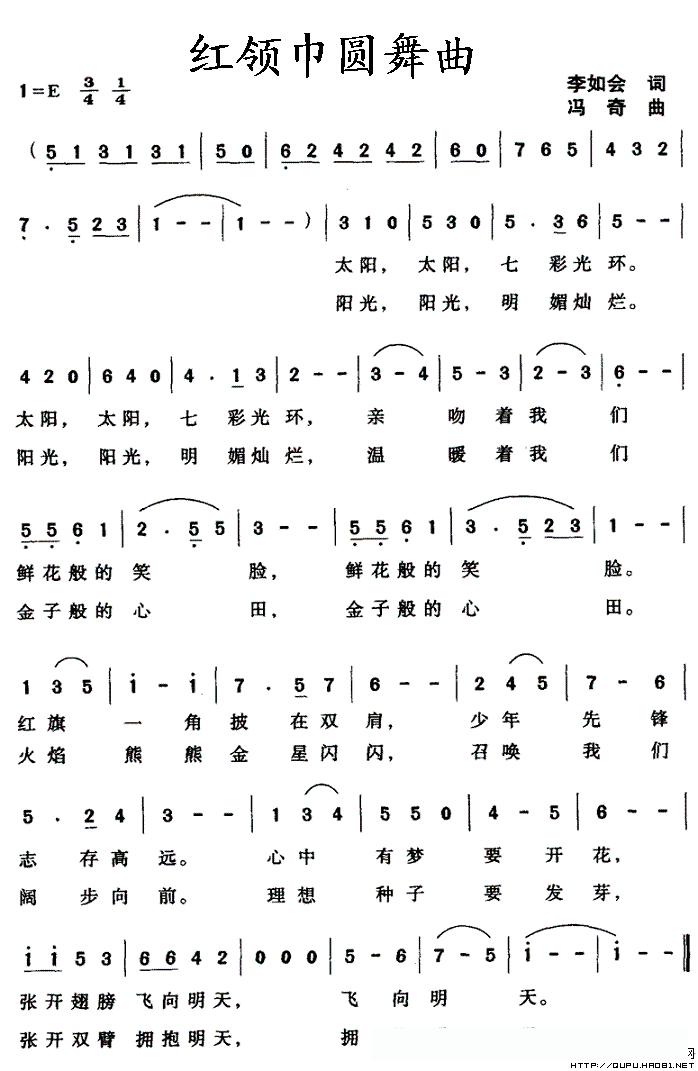 红领巾圆舞曲
1=E 3/4 1/4
李如会 词
冯奇 曲
( 5 1 3 1 3 1 | 5 0 | 6 2 4 2 4 2 | 6 0 | 7 6 5 | 4 3 2 |
7 · 5 2 3 | 1 - - | 1 - - ) | 3 1 0 | 5 3 0 | 5 · 3 6 | 5 - - |
太阳, 太阳, 七 彩光 环。
阳光, 阳光, 明 媚灿 烂。
4 2 0 | 6 4 0 | 4 · 1 3 | 2 - - | 3 - 4 | 5 - 3 | 2 - 3 | 6 - - |
太阳, 太阳, 七 彩光 环, 亲 吻着我 们
阳光, 阳光, 明 媚灿 烂, 温 暖着我 们
5 5 6 1 | 2 · 5 5 | 3 - - | 5 5 6 1 | 3 · 5 2 3 | 1 - - |
鲜花般的 笑 脸, 鲜花般的 笑 脸。
金子般的 心 田, 金子般的 心 田。
1 3 5 | i - i | 7 · 5 7 | 6 - - | 2 4 5 | 7 - 6 |
红旗 一 角披 在双 肩, 少年 先 锋
火焰 熊 熊金 星闪 闪, 召唤 我 们
5 · 2 4 | 3 - - | 1 3 4 | 5 5 0 | 4 - 5 | 6 - - ‖
志 存高 远。 心中 有梦 要 开 花,
阔 步向 前。 理想 种子 要 发 芽,
i i 5 3 | 6 6 4 2 | 0 0 0 | 5 - 6 | 7 - 5 | i - - | i - - ‖
张开翅膀 飞向明天, 飞 向 明 天。
张开双臂 拥抱明天, 拥
HTTP://QUPU.HAO81.NET